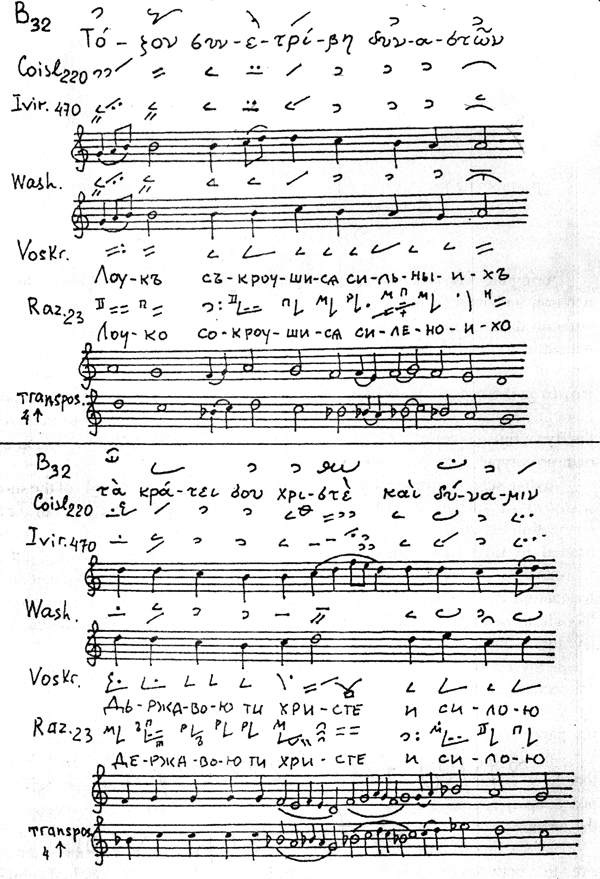 B32
Τό-ξον συν-ὲ-τρί-βη δυν-α-στῶν
Coisl220
Ivir.470
Wash.
Voskr.
Лоу-къ съ-кроу-ши-сѧ си-ль-ны-и-хъ
Raz.23
Лоу-ко со-кроу-ши-сѧ си-ле-но-и-хо
transpos. 4↑
B32
τὰ κρά-τει σου χρι-στὲ καὶ δύ-να-μιν
Coisl220
Ivir.470
Wash.
Voskr.
Дь-ржа-во-ю ти хри-сте и си-ло-ю
Raz.23
Де-ржа-во-ю ти хри-сте и си-ло-ю
transpos 4↑